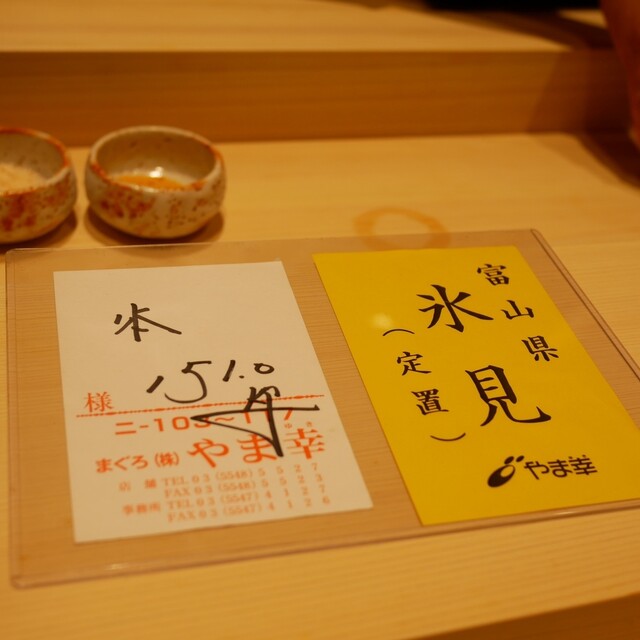 151.0
様
ニ-103~117
まぐろ(株)やま幸
ゆき
店舗 TEL 03 (5548) 5527
FAX 03 (5548) 5523
事務所 TEL 03 (5547) 4127
FAX 03 (5547) 4128
富山県
氷見
(定置)
やま幸